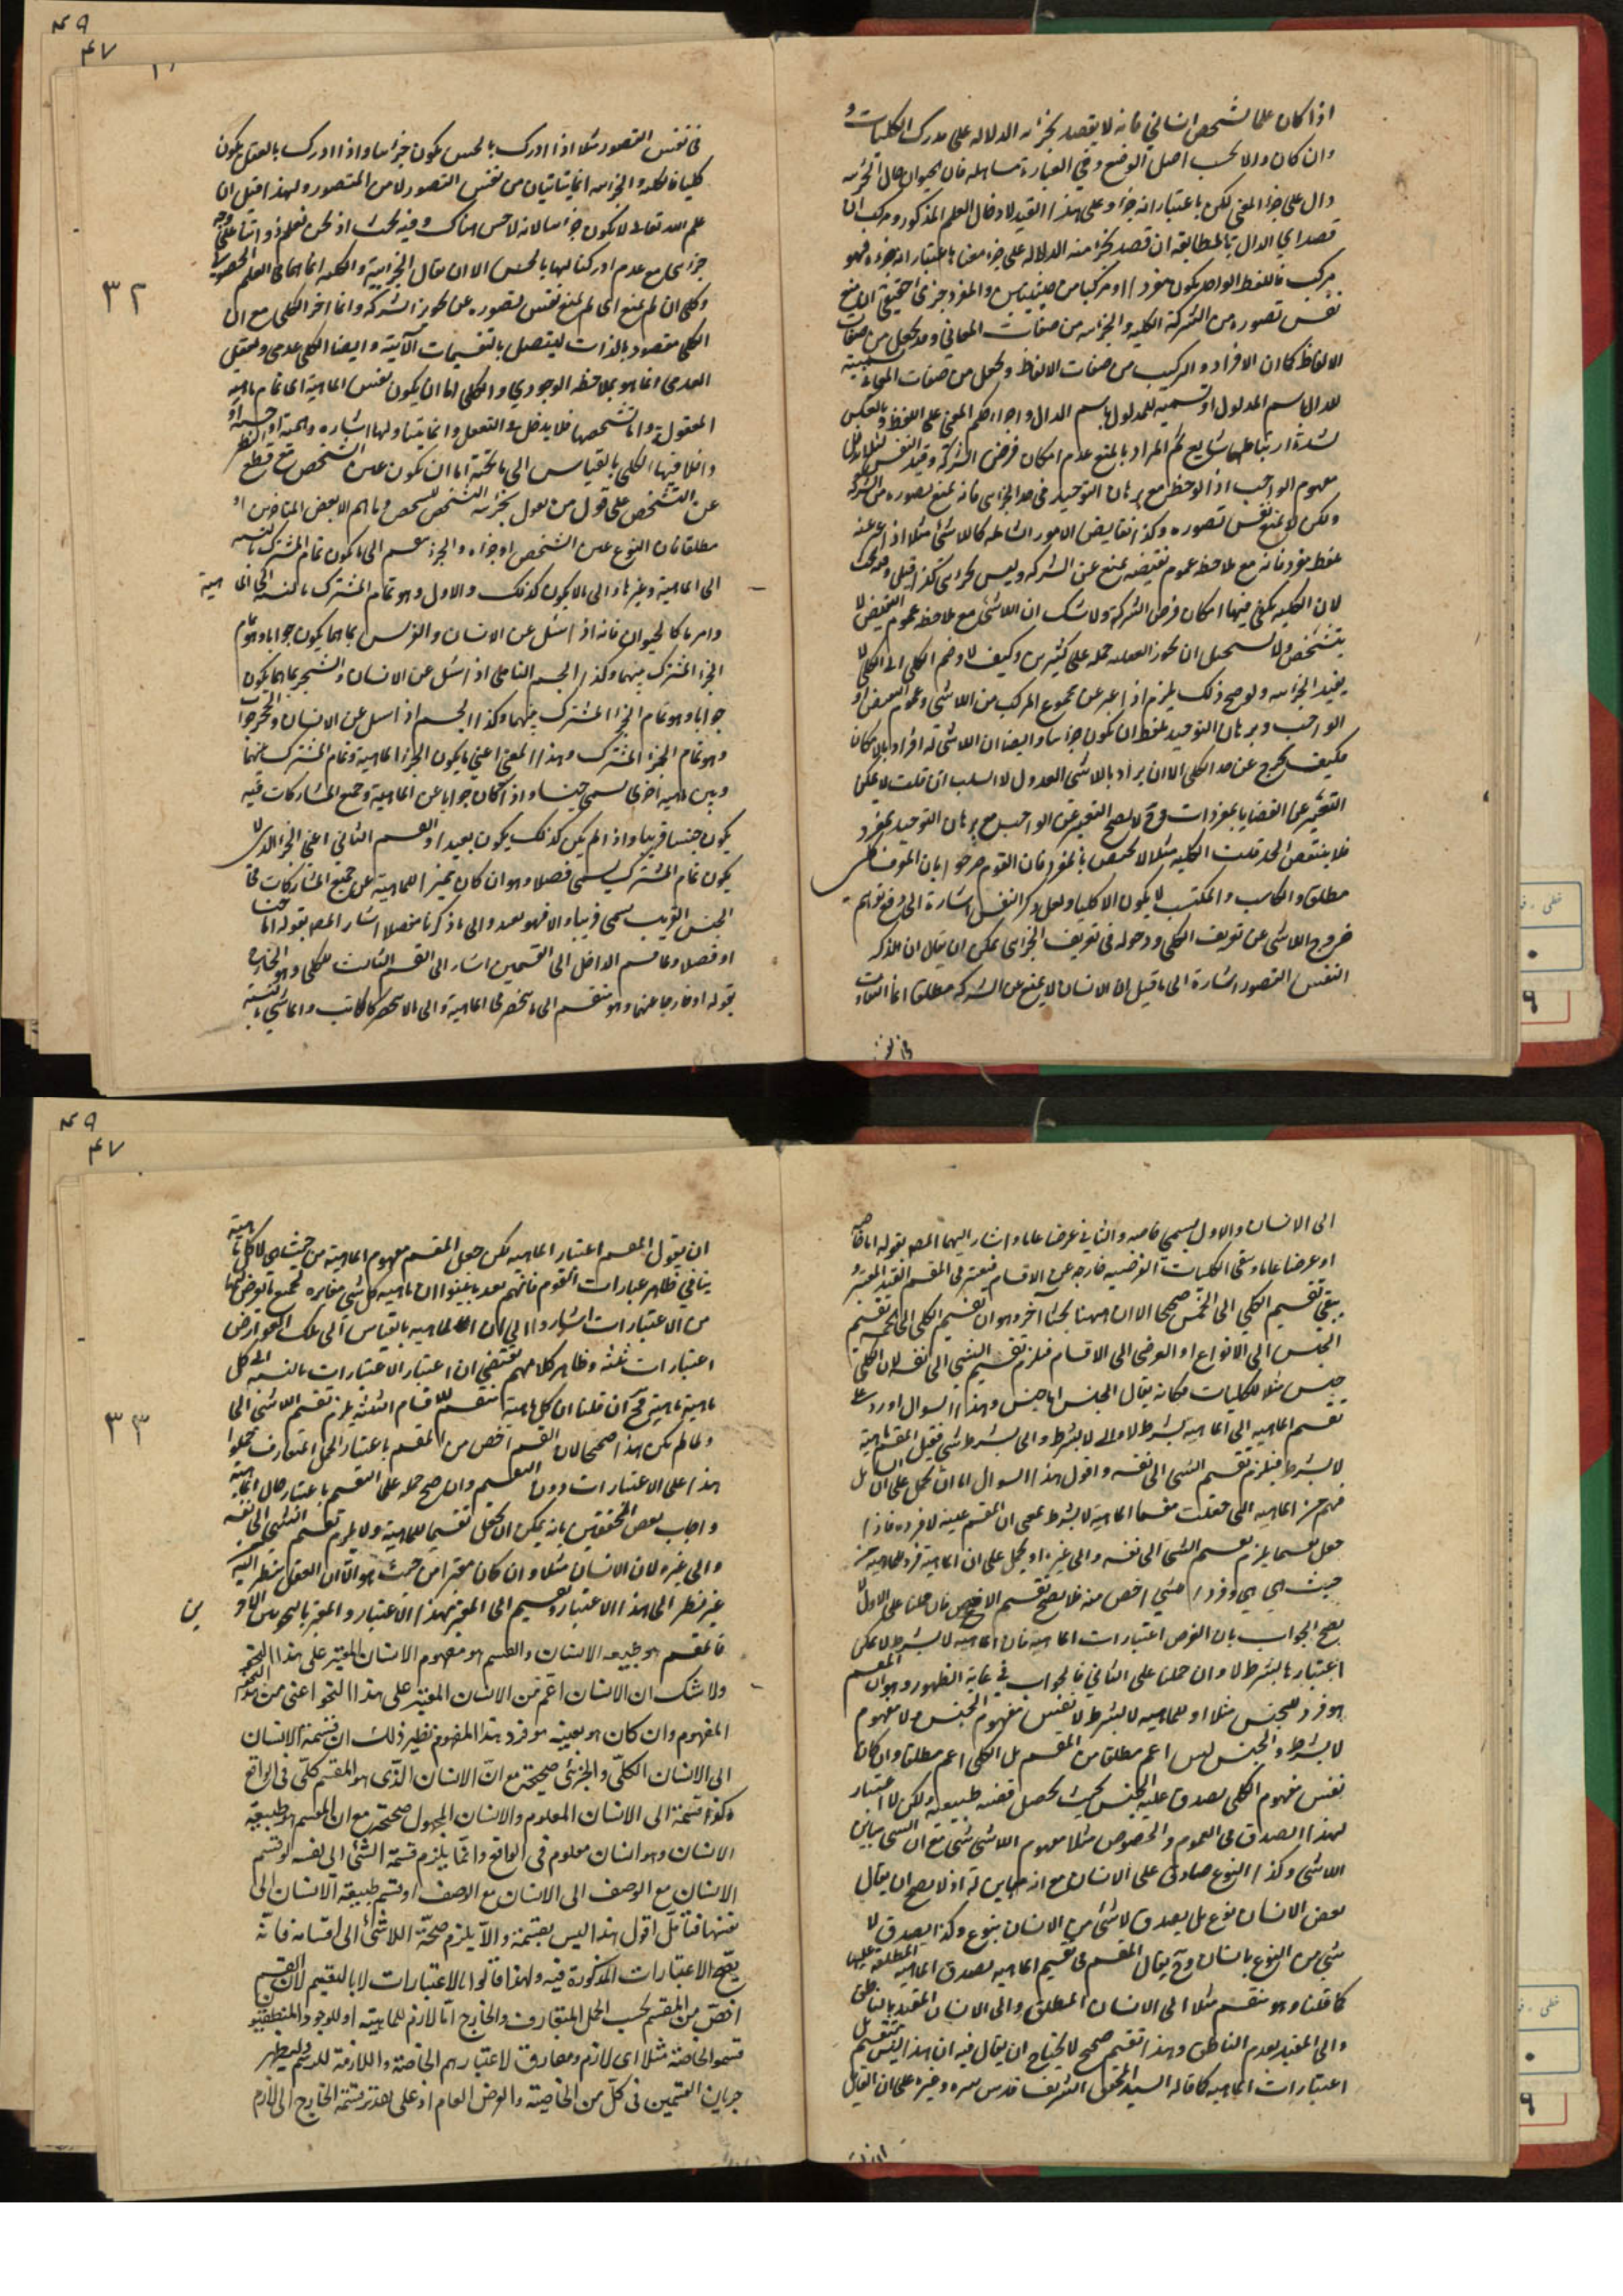 اذا كان علما لشخص انساني فانه لا يقصد بجزائه الدلاله على مدرك الكليات و
وان كان دالا بحسب اصل الوضع وفي العبارة مساهله فان الحيوان حال الجزئيه
دال على جزء المعنى لكن باعتبار انه جزاؤه على هذا القيد لادخال العلم المذكور ومركب ان
قصد اي الدال بالمطابقه ان قصد بجزء منه الدلاله على جزء معناه باعتبار انه جزءه فهو
مركب فاللفظ الواحد يكون مفردا او مركبا من حيثيتين والمفرد جزئي حقيقي ان منع
نفس تصوره من الشركة الكليه والجزئيه من صفات المعاني وقد يجعل من صفات
الالفاظ كما ان الافراد والتركيب من صفات الالفاظ ويجعل من صفات المعاني تسميته
للدال باسم المدلول او تسميه للمدلول باسم الدال واجراء حكم المعنى على اللفظ وبالعكس
لشدة ارتباطهما شايع ثم المراد بالمنع عدم امكان فرض الشركة وقيد النفس لئلا يدخل
مفهوم الواجب اذا لوحظ مع برهان التوحيد في حد الجزئي فانه يمنع تصوره من الشركه
ولكن لا يمنع نفس تصوره وكذا نقايض الامور الشامله كاللاشئ مثلا اذا عبر عنه
بلفظ مفرد فانه مع ملاحظه عموم نقيضه يمنع عن الشركه وليس بجزئي كذا قيل وفيه بحث
لان الكليه يكفي فيها امكان فرض الشركة ولا شك ان اللاشئ مع ملاحظه عموم النقيض لا
يتشخص ولا يستحيل ان يجوز العقل حمله على كثيرين وكيف لا وضم الكلي الى الكلي لا
يفيد الجزئيه ولو صح ذلك يلزم اذا عبر عن مجموع المركب من اللاشئ وعموم النقيض او
الواجب وبرهان التوحيد بلفظ ان يكون جزئيا وايضا ان اللاشئ له افراد بالامكان
فكيف يخرج عن حد الكلي الا ان يراد باللاشئ العدول لا السلب ان قلت لا يمكن
التعبير عن القضايا بمفردات وح لا يصح التعبير عن الواجب مع برهان التوحيد بمفرد
فلا ينتقض الحد قلت الكليه مثلا لا تختص بالمفرد فان القوم صرحوا بان المعرف كلي
مطلقا والكاسب والمكتسب لا يكون الا كليا ولعل ذكر النفس اشارة الى دفع توهم
خروج اللاشئ عن تعريف الكلي ودخوله في تعريف الجزئي يمكن ان يقال ان المذكر
النفس التصور اشارة الى ما قيل ان الانسان لا يمنع عن الشركه مطلقا انما التفاوت
في نفس
٤٩
٤٧
٣٢
في نفس التصور مثلا اذا ادرك بالحس يكون جزئيا واذا ادرك بالعقل يكون
كليا فالكليه والجزئيه انما يتاتيان من نفس التصور لا من المتصور ولهذا قيل ان
علم الله تعالى لا يكون جزئيا لانه لا حس هناك وفيه بحث اذ نحن نعلم ذواتنا على وجه
جزئي مع عدم ادراكنا لها بالحس الا ان يقال الجزئية والكليه انما هما في العلم الحصولي
وكلي ان لم يمنع اي لم يمنع نفس تصوره عن تجويز الشركه وانما اخر الكلي مع ان
الكلي مقصود بالذات ليتصل بالتقسيمات الآتية وايضا الكلي عدمي وتعقل
العدمي انما هو بملاحظه الوجودي والكلي اما ان يكون نفس الماهية اي تمام ماهيه
المعقولة واما تشخصها فلا يدخل في التعقل وانما يتناولها اشاره وهمية او حسية او
واخلا فيها الكلي بالقياس الى ما تحته اما ان يكون عين الشخص مع قطع النظر
عن التشخص على قول من يقول بجزئيه التشخص للشخص وما هم الا بعض المتاخرين او
مطلقا فان النوع عين الشخص او جزاه والجزء ينقسم الى ما يكون تمام المشترك بالنسبه
الى الماهية وغيرها والى ما لا يكون كذلك والاول وهو تمام المشترك بالنسبه الى الماهية
وامر ما كالحيوان فانه اذا سئل عن الانسان والفرس بما هما يكون جوابا وهو تمام
الجزء المشترك بينهما وكذا الجسم النامي اذا سئل عن الانسان والشجر بما هما يكون
جوابا وهو تمام الجزء المشترك بينهما وكذا الجسم اذا سئل عن الانسان والحجر جوابا
وهو تمام الجزء المشترك وهذا المعنى اعني ما يكون الجزء الماهية وتمام المشترك بينها
وبين ماهيه اخرى يسمى جنسا واذا كان جوابا عن الماهية وجميع المشاركات فيه
يكون جنسا قريبا واذا لم يكن كذلك يكون بعيدا والقسم الثاني اعني الجزء الذي لا
يكون تمام المشترك يسمى فصلا وهو ان كان تميز الماهية عن جميع المشاركات في
الجنس القريب يسمى قريبا والا فهو بعيد والى ما ذكرنا مفصلا اشار المص بقوله اما جنسا
او فصلا ولما قسم الداخل الى القسمين اشار الى القسم الثالث للكلي وهو الخارج
بقوله او خارجا عنها وهو منقسم الى ما ينحصر في الماهية والى ما لا ينحصر كالكاتب والماشي بالنسبة
الى الانسان والاول يسمى خاصه والثاني عرضا عاما واشار اليهما المص بقوله اما خاصه
او عرضا عاما وبقى الكليات الفرضيه خارجه عن الاقسام فيعتبر في المقسم القيد المعتبر و
يبقى تقسيم الكلي الى الخمس صحيحا الا ان ههنا بحثا آخر وهو ان تقسيم الكلي الى الخمسه تقسيم
الجنس الى الانواع او العرضي الى الاقسام فيلزم تقسيم الشئ الى نفسه لان الكلي
جنس مثلا للكليات فكانه يقال الجنس اما جنس وهذا السوال اورد على
تقسيم الماهيه الى الماهيه بشرط لا والى لا بشرط والى بشرط شئ فقيل المقسم ماهية
لا بشرط فيلزم تقسيم الشئ الى نفسه واقول هذا السوال اما ان يحمل على ان السائل
فهم من الماهيه التي جعلت مقسما الماهيه لا بشرط بمعنى ان المقسم عينه لا فرده فاذا
جعل قسما يلزم تقسيم الشئ الى نفسه والى غيره او يحمل على ان الماهية فرد الماهيه من
حيث هي هي وفرد الشئ اخص منه فلا يصح تقسيم الاخص فان حملنا على الاول لا
يصح الجواب بان الغرض اعتبارات الماهية فان الماهيه لا بشرط لا يمكن
اعتبارها بشرط لا وان حملنا على الثاني فالجواب في غاية الظهور وهو ان المقسم
هو فرد للجنس مثلا او للماهيه لا بشرط لا نفس مفهوم الجنس ولا مفهوم
لا بشرط والجنس ليس اعم مطلقا من المقسم بل الكلي اعم مطلقا وان كان
نفس مفهوم الكلي يصدق عليه الجنس بحيث يحصل قضيه طبيعيه ولكن لا اعتبار
لهذا الصدق في العموم والخصوص مثلا مفهوم اللاشئ شئ مع ان الشئ يباين
اللاشئ وكذا النوع صادق على الانسان مع انه مباين له اذ لا يصح ان يقال
بعض الانسان نوع بل يصدق لا شئ من الانسان بنوع وكذا يصدق لا
شئ من النوع بانسان وح يقال المقسم في تقسيم الماهيه يصدق الماهيه المطلقه عليها
كما قلنا وهو منقسم مثلا الى الانسان المطلق والى الانسان المقيد بالناطق
والى المقيد بعدم الناطق وهذا تقسيم صحيح لا يحتاج ان يقال فيه ان هذا ليس تقسيم بل
اعتبارات الماهيه كما قاله السيد المحقق الشريف قدس سره وغيره على ان القايل
٤٩
٤٧
٣٣
ان يقول المقسم اعتبار الماهيه لكن جعل المقسم مفهوم الماهية من حيث هي لا كل ماهية
ينافي ظاهر عبارات القوم فانهم بعد ما بينوا ان ماهيه كل شئ مغايره لجميع ما يعرض لها
من الاعتبارات اشاروا الى ان للماهيه بالقياس الى تلك العوارض
اعتبارات ثلثه وظاهر كلامهم يقتضي ان اعتبار الاعتبارات بالنسبه الى كل
ماهية ماهية فح ان قلنا ان كل ماهية تنقسم للاقسام الثلثه يلزم تقسيم اللاشئ الى
ولما لم يكن هذا صحيحا لان القسم اخص من المقسم باعتبار الحمل المتعارف حملوا
هذا على الاعتبارات دون التقسيم وان صح حمله على التقسيم باعتبار حال الماهية
واجاب بعض المحققين بانه يمكن ان يجعل تقسيما للماهية ولا يلزم تقسيم الشئ الى نفسه
والى غيره لان الانسان مثلا وان كان معتبرا من حيث هو الا ان العقل ينظر اليه
غير نظر الى هذا الاعتبار وتقسيم الى المعتبر بهذا الاعتبار والمعتبر بالنحوين الاخرين
فالمقسم هو طبيعه الانسان والقسم هو مفهوم الانسان المعتبر على هذا النحو
ولا شك ان الانسان اعم من الانسان المعتبر على هذا النحو اعني من هذا
المفهوم وان كان هو بعينه هو فرد هذا المفهوم نظير ذلك ان قسمة الانسان
الى الانسان الكلي والجزئي صحيحة مع ان الانسان الذي هو المقسم كلي في الواقع
وكذا قسمة الى الانسان المعلوم والانسان المجهول صحيحة مع ان المقسم هو طبيعة
الانسان وهو انسان معلوم في الواقع وانما يلزم قسمة الشئ الى نفسه لو قسم
الانسان مع الوصف الى الانسان مع الوصف او قسم طبيعة الانسان الى
نفسها فتأمل اقول هذا ليس بقسمة والا يلزم صحة اللاشئ الى اقسامه فانه
يصح الاعتبارات المذكورة فيه ولهذا قالوا بالاعتبارات لا بالتقسيم لان القسم
اخص من المقسم بحسب الحمل المتعارف والخارج اما لازم للماهية او للوجود المنطقيين
قسموا الخاصة مثلا اى لازم ومفارق لاعتبارهم الخاصة اللازمة للرسم وليظهر
جريان القسمين في كل من الخاصة والعرض العام اذ على تقدير قسمة الخارج الى لازم